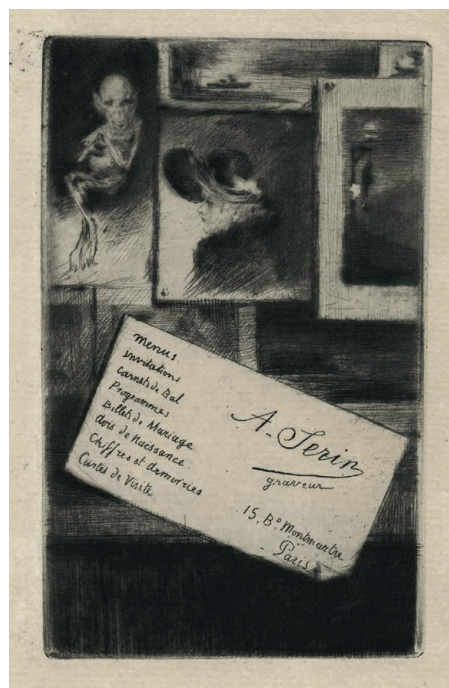 menus
invitations
Carnets de Bal
Programmes
Billets de Mariage
Avis de Naissance
Chiffres et Armoiries
Cartes de Visite
A. Serin
graveur
15, Bd Montmartre
Paris